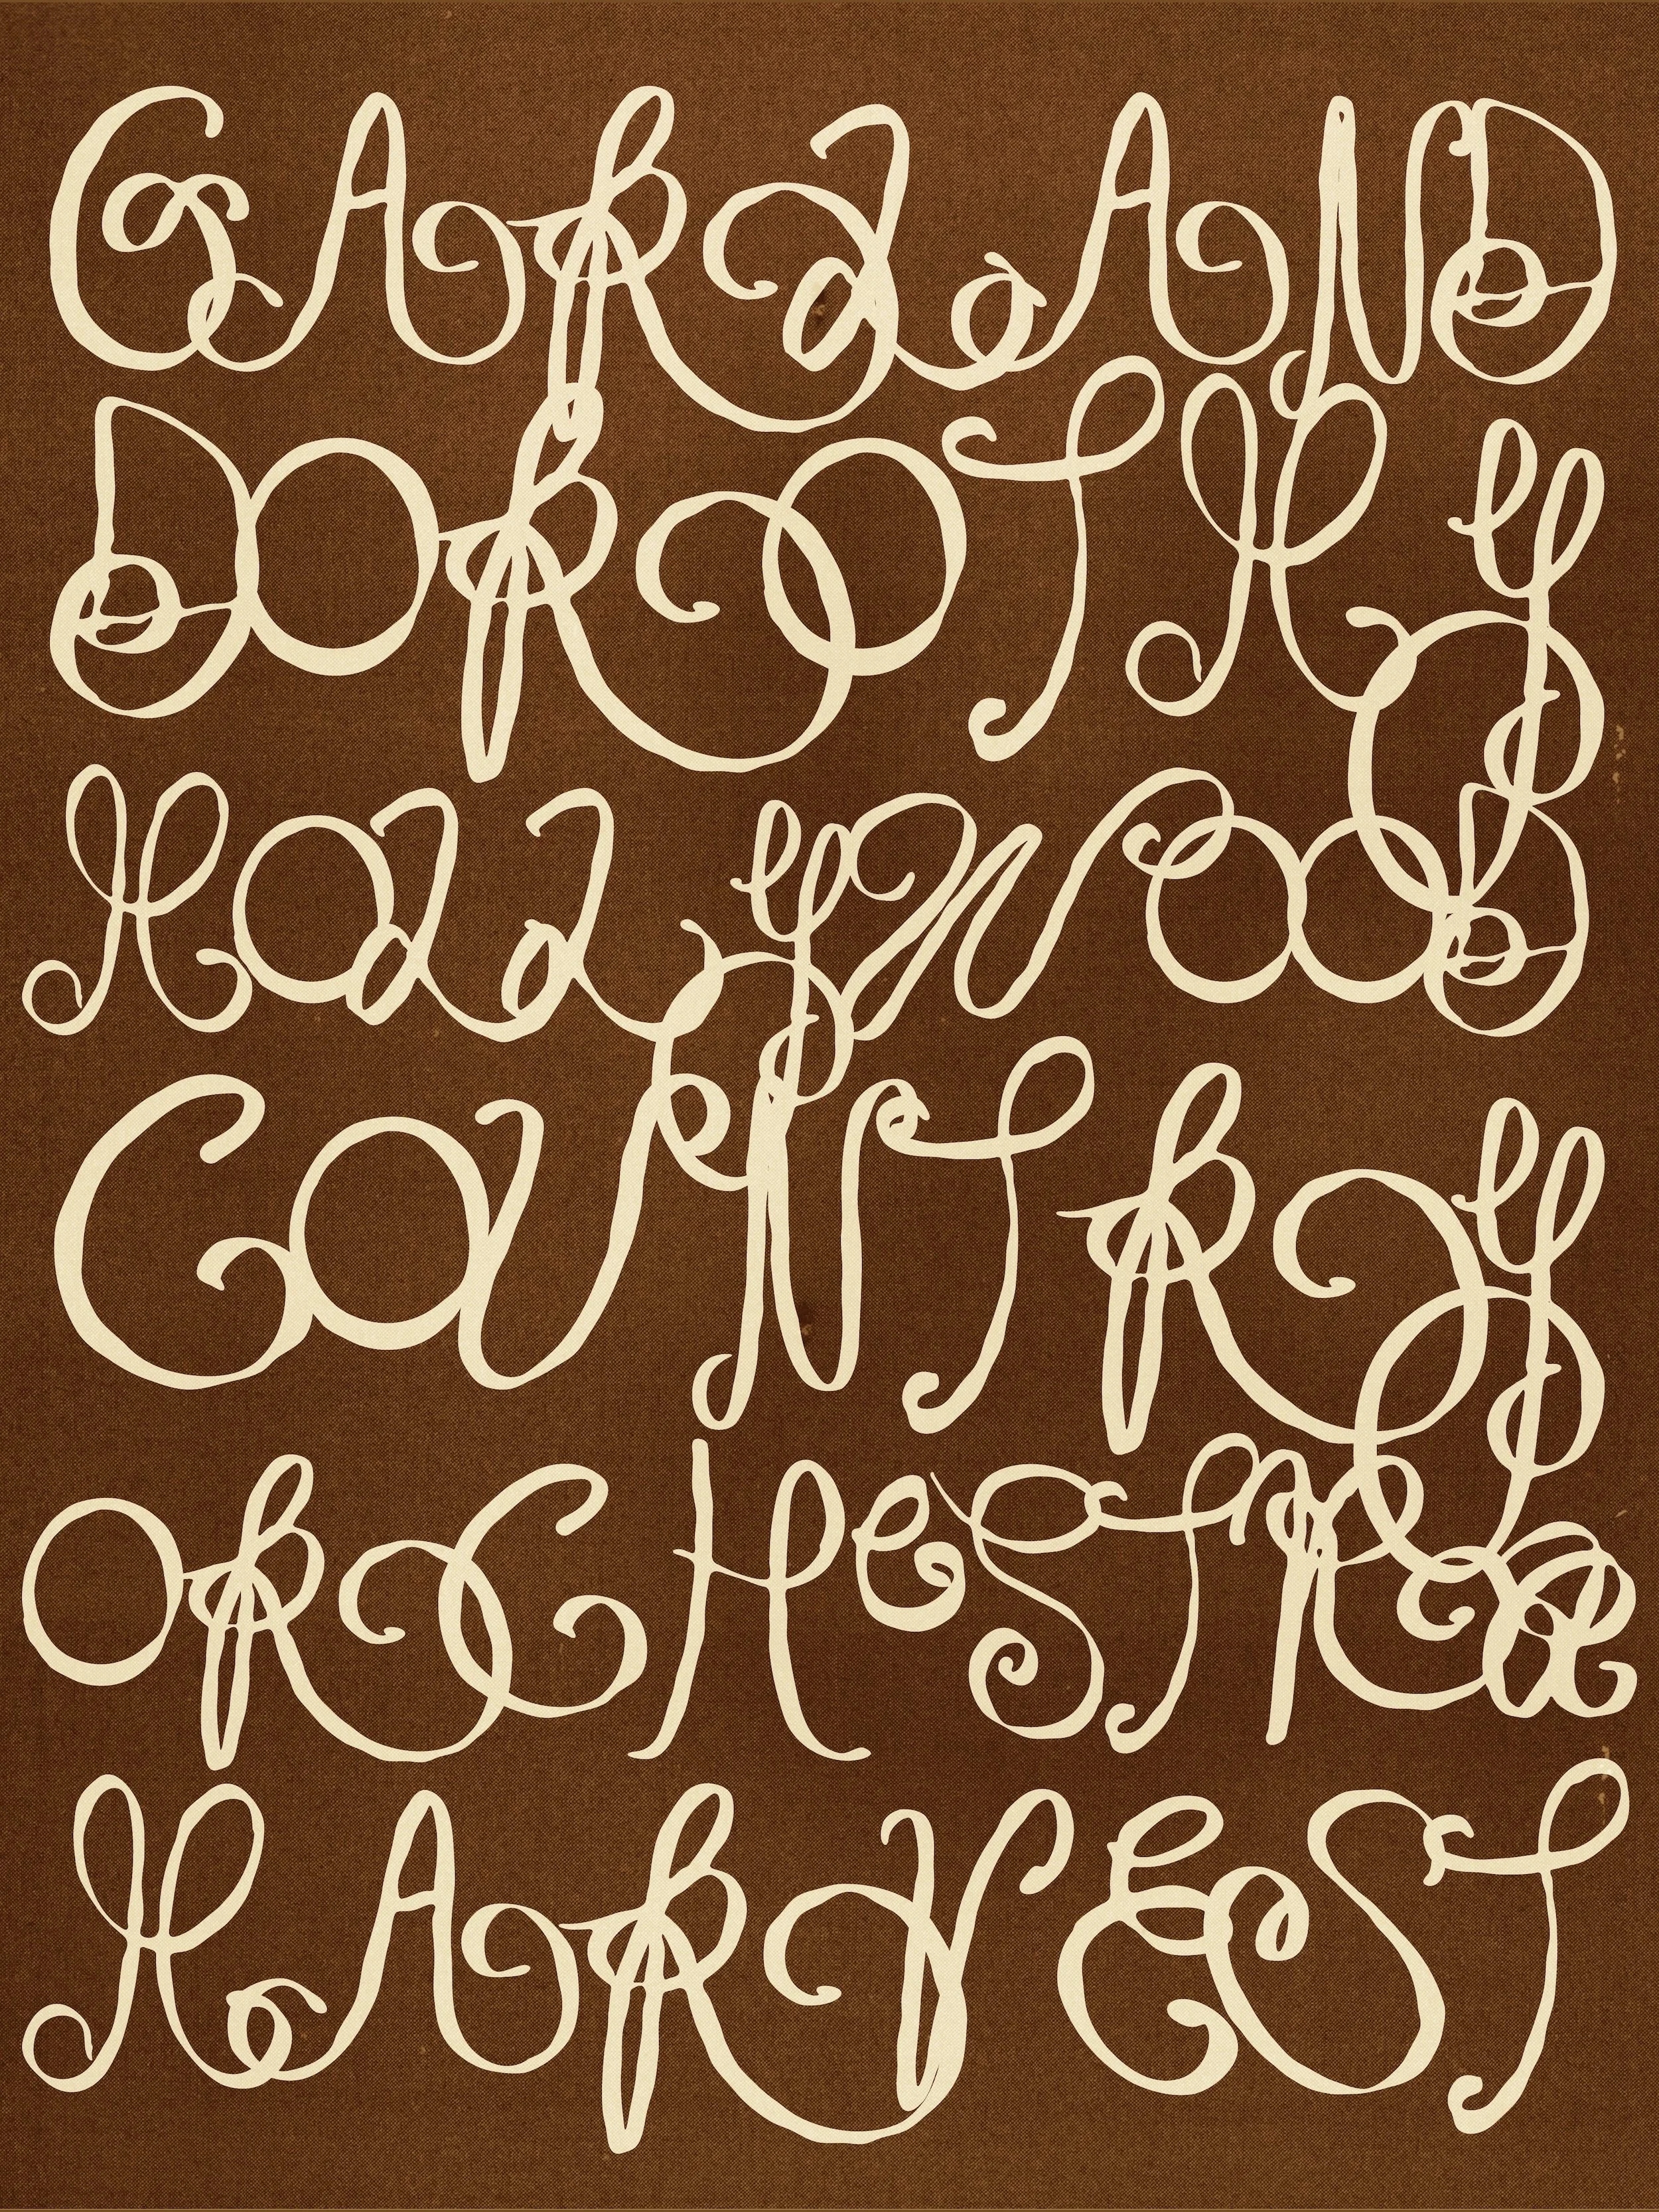 GARLAND
DOROTHY
HOLLYWOOD
COUNTRY
ORCHESTRA
HARVEST